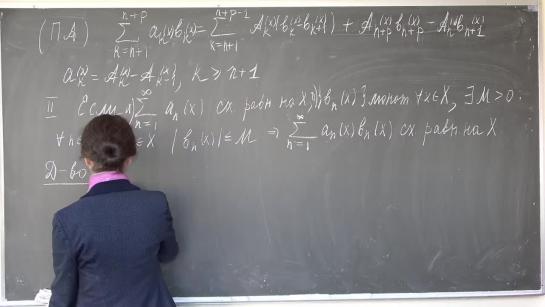 (ПА) ∑_{k=n+1}^{n+p} a_k(x)b_k(x) = ∑_{k=n+1}^{n+p-1} A_k(x)(b_k(x) - b_{k+1}(x)) + A_{n+p}(x)b_{n+p}(x) - A_n(x)b_{n+1}(x)
a_k(x) = A_k(x) - A_{k-1}(x), k ≥ n+1
II Если 1) ∑_{n=1}^{∞} a_n(x) сх равн на X, 2) {b_n(x)} монот ∀x∈X, ∃M>0:
∀n∈ X |b_n(x)| ≤ M ⇒ ∑_{n=1}^{∞} a_n(x)b_n(x) сх равн на X
Д-во